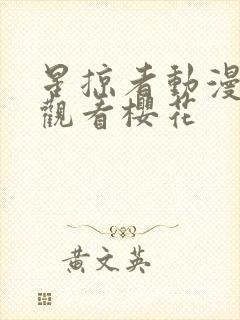 星掠者動漫
觀看櫻花
黃文英